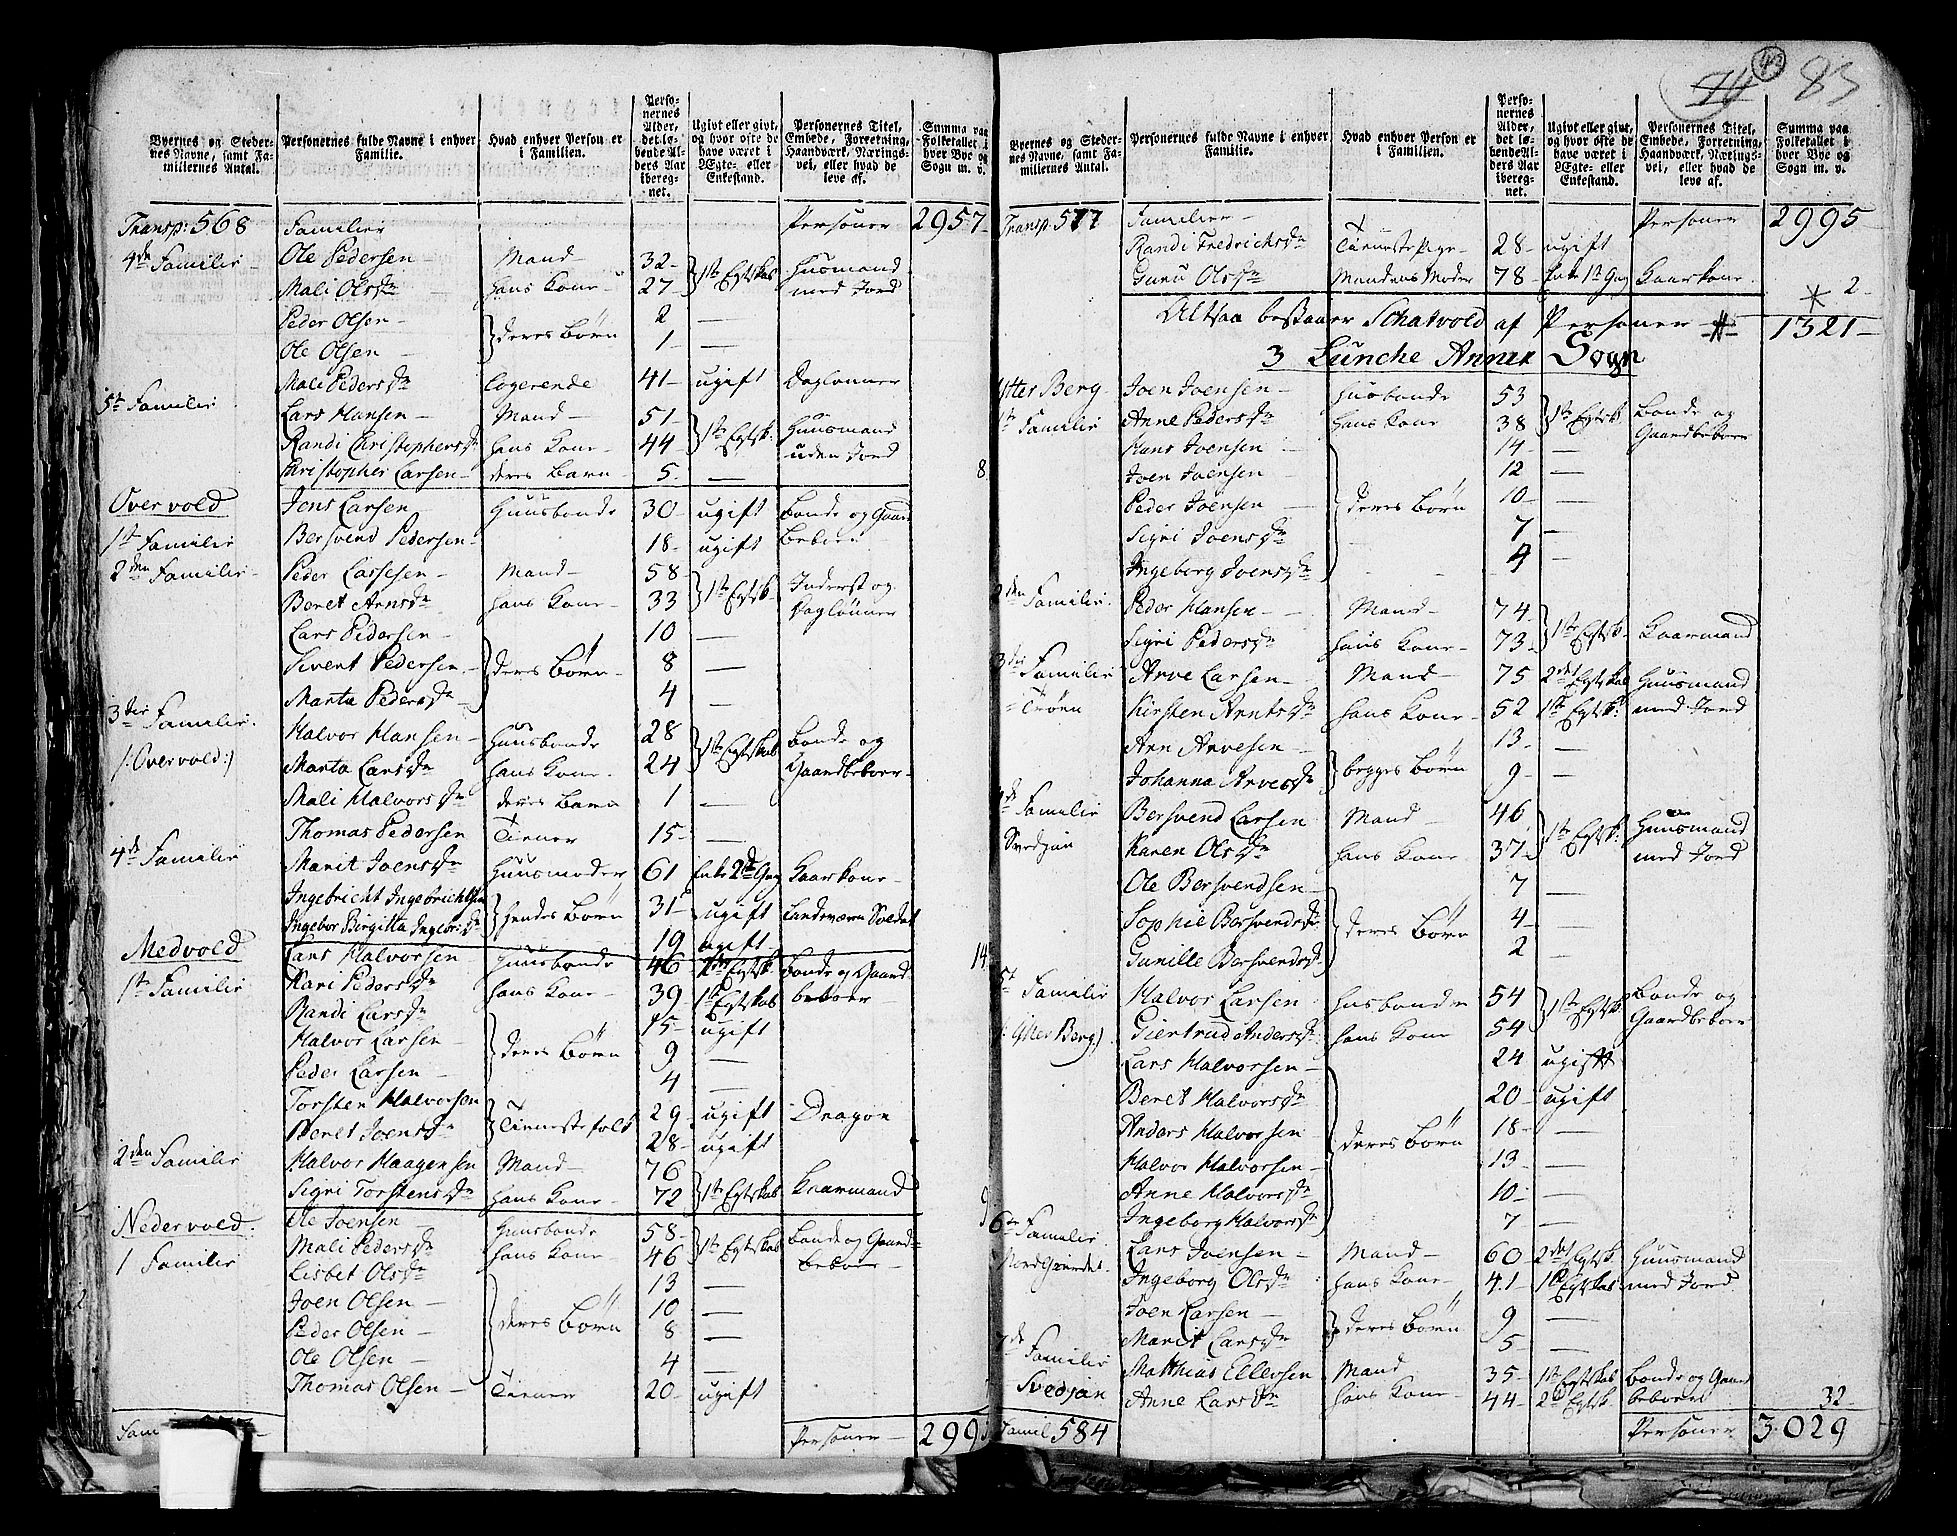 Byernes og Stedernes Navne, samt Familiernes Antal. | Personernes fulde Navne i enhver Familie. | Hvad enhver Person er i Familien. | Personernes Alder, det løbende Alders Aar iberegnet. | Ugivt eller givt, og hvor ofte de have været i Ægte- eller Enkestand. | Personernes Titel, Embede, Forretning, Haandværk, Næringsvei, eller hvad de leve af. | Summa paa Folketallet i hver Bye og Sogn m. v.
Transp: 568 Familier Personer 2957
4de Familie Ole Pedersen Mand 32 1te Egtskab Huusmand
Mali Olsdr hans Kone 27 med Jord
Peder Olsen deres Börn 2
Ole Olsen 1 —
Mali Pedersdr Logerende 41 ugift Daglönner
5te Familie Lars Hansen Mand 51 1te Egtsk: Huusmand
Randi Christophersdr hans Kone 44 uden Jord
Christopher Larsen deres Barn 5 — 8
Overvold Jens Larsen Huusbonde 30 ugift Bonde og Gaard
1te Familie Bersvend Pedersen 18 ugift Beboer
2den Familie Peder Larsesen Mand 58 1te Egtsk. Inderst og
Beret Arnsdr hans Kone 33 Daglönner
Lars Pedersen deres Börn 10 —
Sivert Pedersen 8 —
Marta Pedersdr 4 —
3die Familie Halvor Hansen Huusbonde 28 1te Egtskab Bonde og
/:Overvold:/ Marta Larsdr hans Kone 24 Gaardbeboer
Mali Halvorsdr deres Barn 1 —
Thomas Pedersen Tiener 15 —
4de Familie Marit Joensdr Huusmoder 61 Enke 2de Gag Kaarkone
Ingebricht Ingebrichtsen hendes Börn 31 ugift Landeværn Soldat
Ingebor Birgitta Ingebrsdr 19 ugift 14
Medvold Lars Halvorsen Huusbonde 46 2det Egtsk. Bonde og Gaard
1te Familie Kari Pedersdr hans Kone 39 1te Egtskab beboer
Randi Larsdr deres Börn 15 ugift
Halvor Larsen 9 —
Peder Larsen 4 —
Torsten Halvorsen Tienestefolk 29 ugift Dragon
Beret Joensdr 28 ugift
2den Familie Halvor Haagensen Mand 76 1te Egtskab Kaarmand
Sigri Torstensdr hans Kone 72 9
Nedervold Ole Joensen Huusbonde 58 1te Egtskab Bonde og Gaard
1 Familie Mali Pedersdr hans Kone 46 beboer
Lisbet Olsdr deres Börn 13 —
Joen Olsen 10 —
Peder Olsen 8 —
Ole Olsen 4 —
Thomas Olsen Tiener 20 ugift
Personer 2995
43 83
Byernes og Stedernes Navne, samt Familiernes Antal. | Personernes fulde Navne i enhver Familie. | Hvad enhver Person er i Familien. | Personernes Alder, det løbende Alders Aar iberegnet. | Ugivt eller givt, og hvor ofte de have været i Ægte- eller Enkestand. | Personernes Titel, Embede, Forretning, Haandværk, Næringsvei, eller hvad de leve af. | Summa paa Folketallet i hver Bye og Sogn m. v.
Transp: 577 Familier Personer 2995
Randi Fredrichsdr Tienestepige 28 ugift
Guru Olsdr Mandens Moder 78 Enke 1te Gag Kaarkone 2
Altsaa bestaaer Schatvold af Personer 1321
3 Lunche Annex Sogn
Ytter Berg Joen Joensen Husbonde 53 1te Egtsk. Bonde og
1te Familie Anne Pedersdr hans Kone 38 Gaardbeboer
Hans Joensen deres Börn 14 —
Joen Joensen 12 —
Peder Joensen 10 —
Sigri Joensdr 7 —
Ingeborg Joensdr 4 —
2den Familie Peder Hansen Mand 74 1te Egtsk. Kaarmand
Sigri Pedersdr hans Kone 73
3die Familie Arve Larsen Mand 75 2det Egtskab Huusmand
Tröen Kirsten Arntsdr hans Kone 52 1te Egtsk. med Jord
Arn Arvesen begges Börn 13 —
Johanna Arvesdr 9 —
4de Familie Bersvend Larsen Mand 46 1te Egtsk. Huusmand
Svedjan Karen Olsdr hans Kone 37 med Jord
Ole Bersvendsen deres Börn 7 —
Sophie Bersvendsdr 4 —
Gunille Bersvendsdr 2 —
5te Familie Halvor Larsen husbonden 54 1te Egtsk. Bonde og
/:Ytter Berg:/ Giertrud Andersdr hans Kone 54 Gaardbeboer
Lars Halvorsen deres Börn 24 ugift
Beret Halvorsdr 20 ugift
Anders Halvorsen 18 —
Halvor Halvorsen 13 —
Anne Halvorsdr 10 —
Ingeborg Halvorsdr 7 —
6te Familie Lars Joensen Mand 60 2det Egtsk. Huusmand
Ingeborg Olsdr hans Kone 41 1te Egtskab med Jord
Joen Larsen deres Börn 9 —
Marit Larsdr 5 —
7de Familie Matthias Ellevsen Mand 35 1te Egtskab Bonde og Gaard
Svedjan Anne Larsdr hans Kone 44 2de Egtsk. beboer 32
Famil 584 Personer 3029